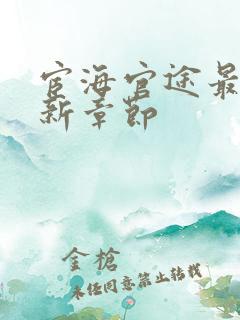 宦海官途最
新章节
金槍
未经同意禁止转载